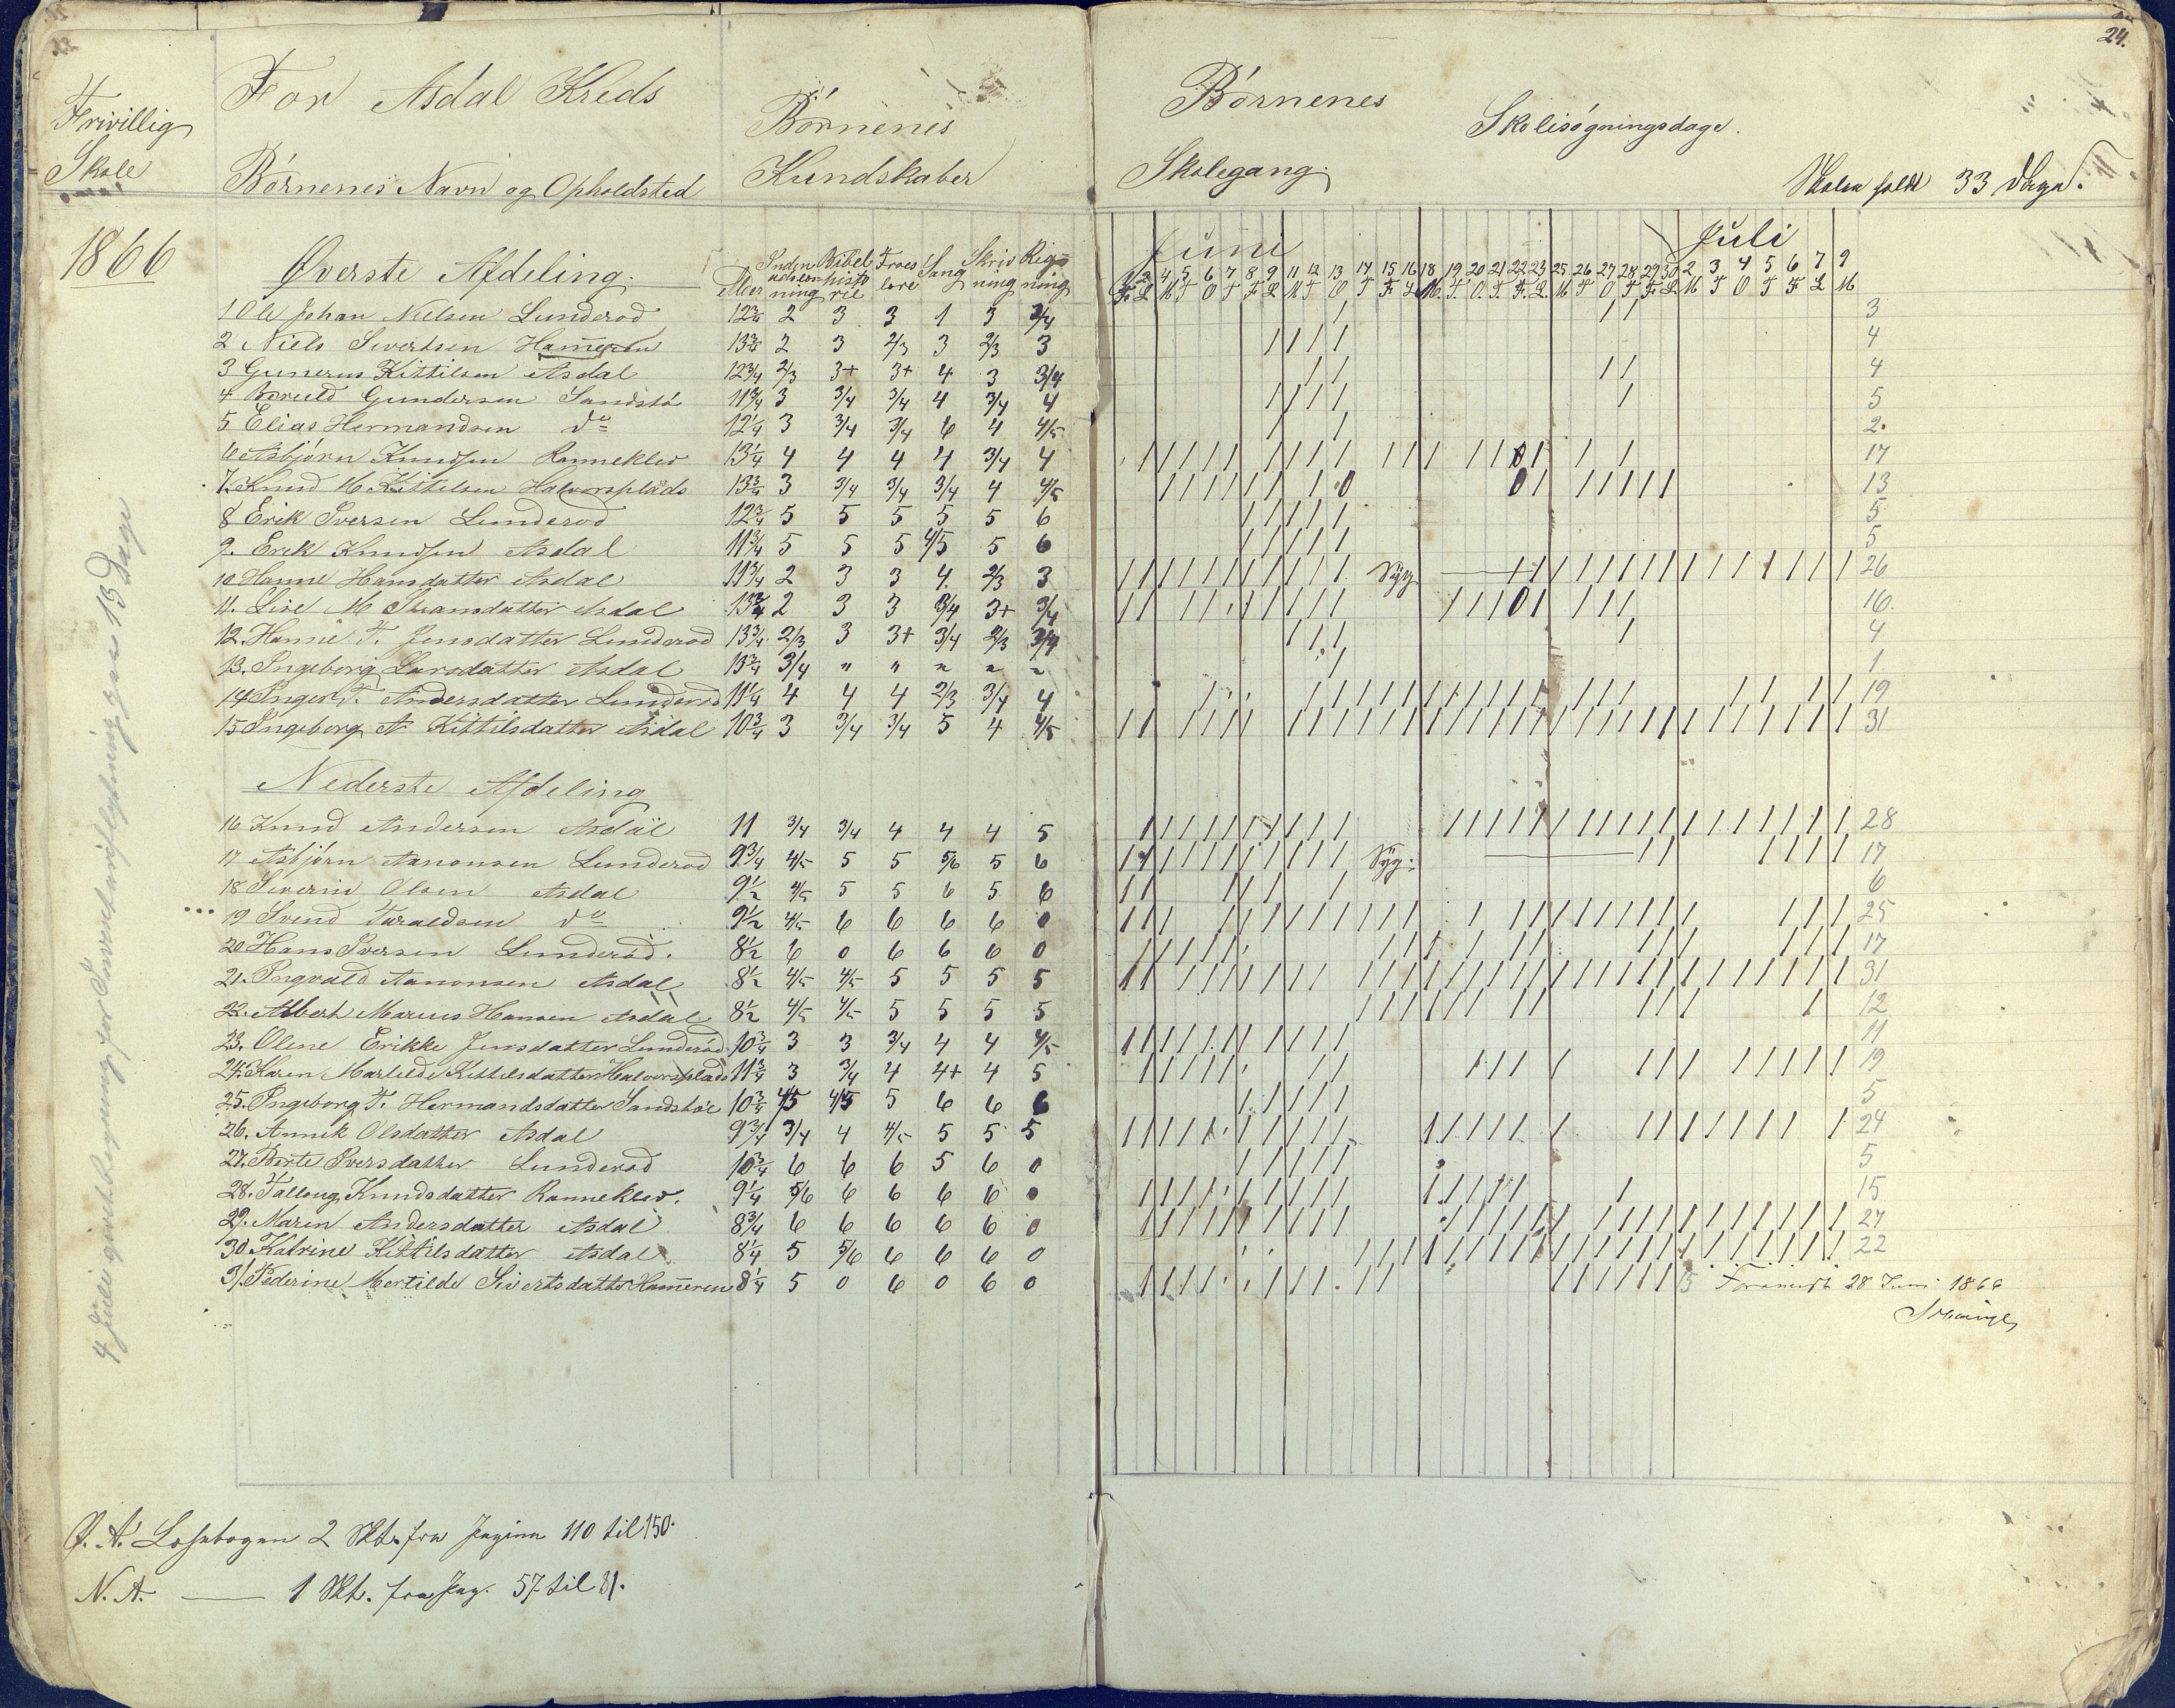 Frivillig
Skole
1866
For Asdal Kreds
Børnenes Navn og Opholdsted
Børnenes
Kundskaber
Øverste Afdeling.
Alder Inden adslæsning Bibel historie Troes lære Sang Skriv ning Rigning
1 Ole Johan Nielsen Lunderød 12¾ 2 3 3 1 3 3/4
2 Niels Sivertsen Hammeren 13¾ 2 3 2/3 3 2/3 3
3 Gunerus Kittilsen Asdal 12¾ 2/3 3+ 3+ 4 3 3/4
4 Gundersen Sandstø 11¾ 3 3/4 3/4 4 3/4 4
5 Elias Hermandsen do 12¼ 3 3/4 3/4 6 4 4/5
6 Asbjørn Knudsen Ranneklev 13¼ 4 4 4 4 3/4 4
7. Knud M Kittelsen Halvorsplads 13¾ 3 3/4 3/4 3/4 4 4/5
8 Erik Iversen Lunderød 12¾ 5 5 5 5 5 6
9. Erik Knudsen Asdal 11¾ 5 5 5 4/5 5 6
10 Hanne Hansdatter Asdal 11¾ 2 3 3 4 2/3 3
11. Lise M Asdal 13¾ 2 3 3 3/4 3+ 3/4
12. Hanne T. Jensdatter Lunderød 13¾ 2/3 3 3+ 3/4 2/3 3/4
13. Ingeborg Larsdatter Asdal 13¾ 3/4 " " " " "
14 Inger T. Andersdatter Lunderød 11¼ 4 4 4 2/3 3/4 4
15 Ingeborg A Kittilsdatter Asdal 10¾ 3 3/4 3/4 5 4 4/5
Nederste Afdeling
16 Knud Andersen Asdal 11 3/4 3/4 4 4 4 5
17 Asbjørn Aanonsen Lunderød 9¾ 4/5 5 5 5/6 5 6
18 Severin Olsen Asdal 9½ 4/5 5 5 6 5 6
19 Svend Taraldsen do 9½ 4/5 6 6 6 6 0
20 Hans Iversen Lunderød. 8½ 6 0 6 6 6 0
21. Ingvald Aanonsen Asdal 8½ 4/5 4/5 5 5 5 5
22. Albert Marius Hansen Asdal 8½ 4/5 4/5 5 5 5 5
23. Olene Erikke Jensdatter Lunderød 10¾ 3 3 3/4 4 4 4/5
24. Karen Matilde Kittilsdatter Halvorsplads 11¾ 3 3/4 4 4+ 4 5
25. Ingeborg T. Hermandsdatter Sandstø 10¾ 4/5 4/5 5 6 6 6
26. Annik Olsdatter Asdal 9¾ 3/4 4 4/5 5 5 5
27. Berte Iversdatter Lunderød 10¾ 6 6 6 5 6 0
28. Talloug Knudsdatter Ranneklev. 9¼ 5/6 6 6 6 6 0
29. Maren Andersdatter Asdal 8¾ 6 6 6 6 6 0
30 Katrine Kittilsdatter Asdal 8¼ 5 5/6 6 6 6 0
31. Pederine Mertilde Sivertsdatter Hammeren 8¼ 5 0 6 0 6 0
Ø. A. Læsebogen 2 Skt. fra Pagina 110 til 150.
N. A. — 1 Skt. fra Pag. 57 til 81.
24.
Børnenes
Skolegang.
Skolesøgningsdage.
Skolen holdt 33 Dage.
Juni Juli
1 2 4 5 6 7 8 9 11 12 13 14 15 16 18 19 20 21 22 23 25 26 27 28 29 30 2 3 4 5 6 7 9
F. L M T O T F L M T O T F. L M. T. O. T. F. L. M T O T F. L M T O T F L M
3
4
4
5
2.
17
13
5
5
Syg 26
16.
4
1
19
31
28
Syg. 17
6
25
17
31
12
11
19
5
24
5
15
27
22
15 28 Juni 1866